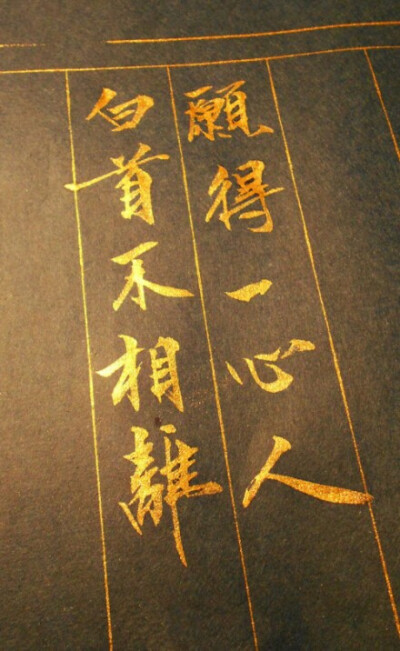 願得一心人
白首不相離